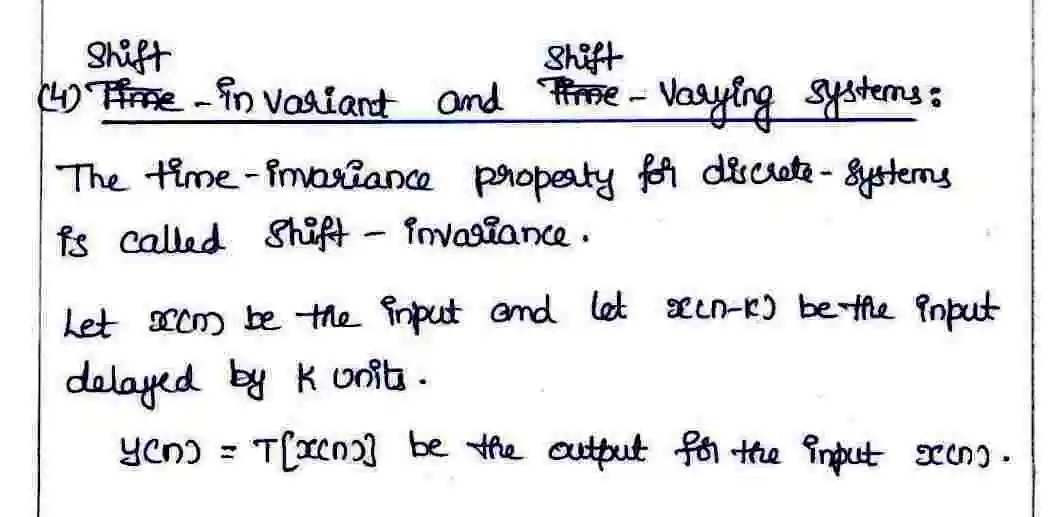 Shift Shift
(4) Time - invariant and Time - Varying Systems:
The time - invariance property for discrete - systems
is called Shift - invariance.
Let x(n) be the input and let x(n-k) be the input
delayed by K units.
y(n) = T[x(n)] be the output for the input x(n).